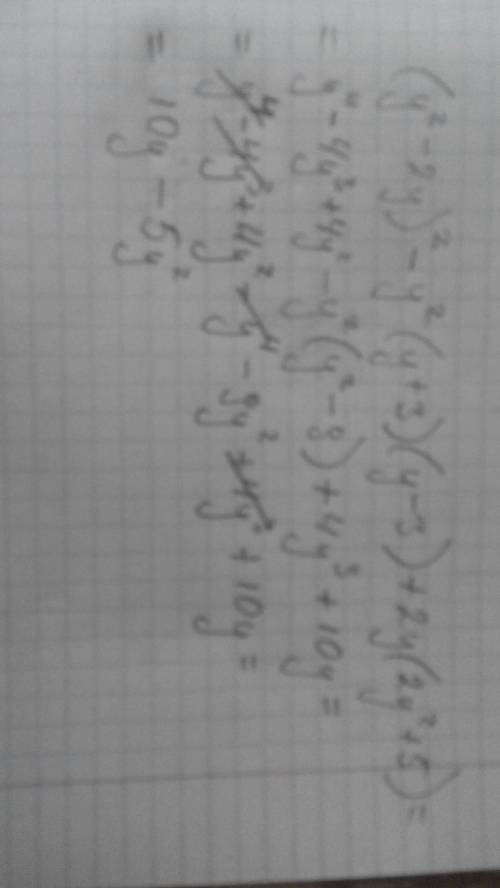 (y² - 2y)² - y² (y+3)(y-3) + 2y(2y² + 5) =
= y⁴ - 4y³ + 4y² - y² (y² - 9) + 4y³ + 10y =
= y⁴ - 4y³ + 4y² - y⁴ - 9y² + 4y³ + 10y =
= 10y - 5y²